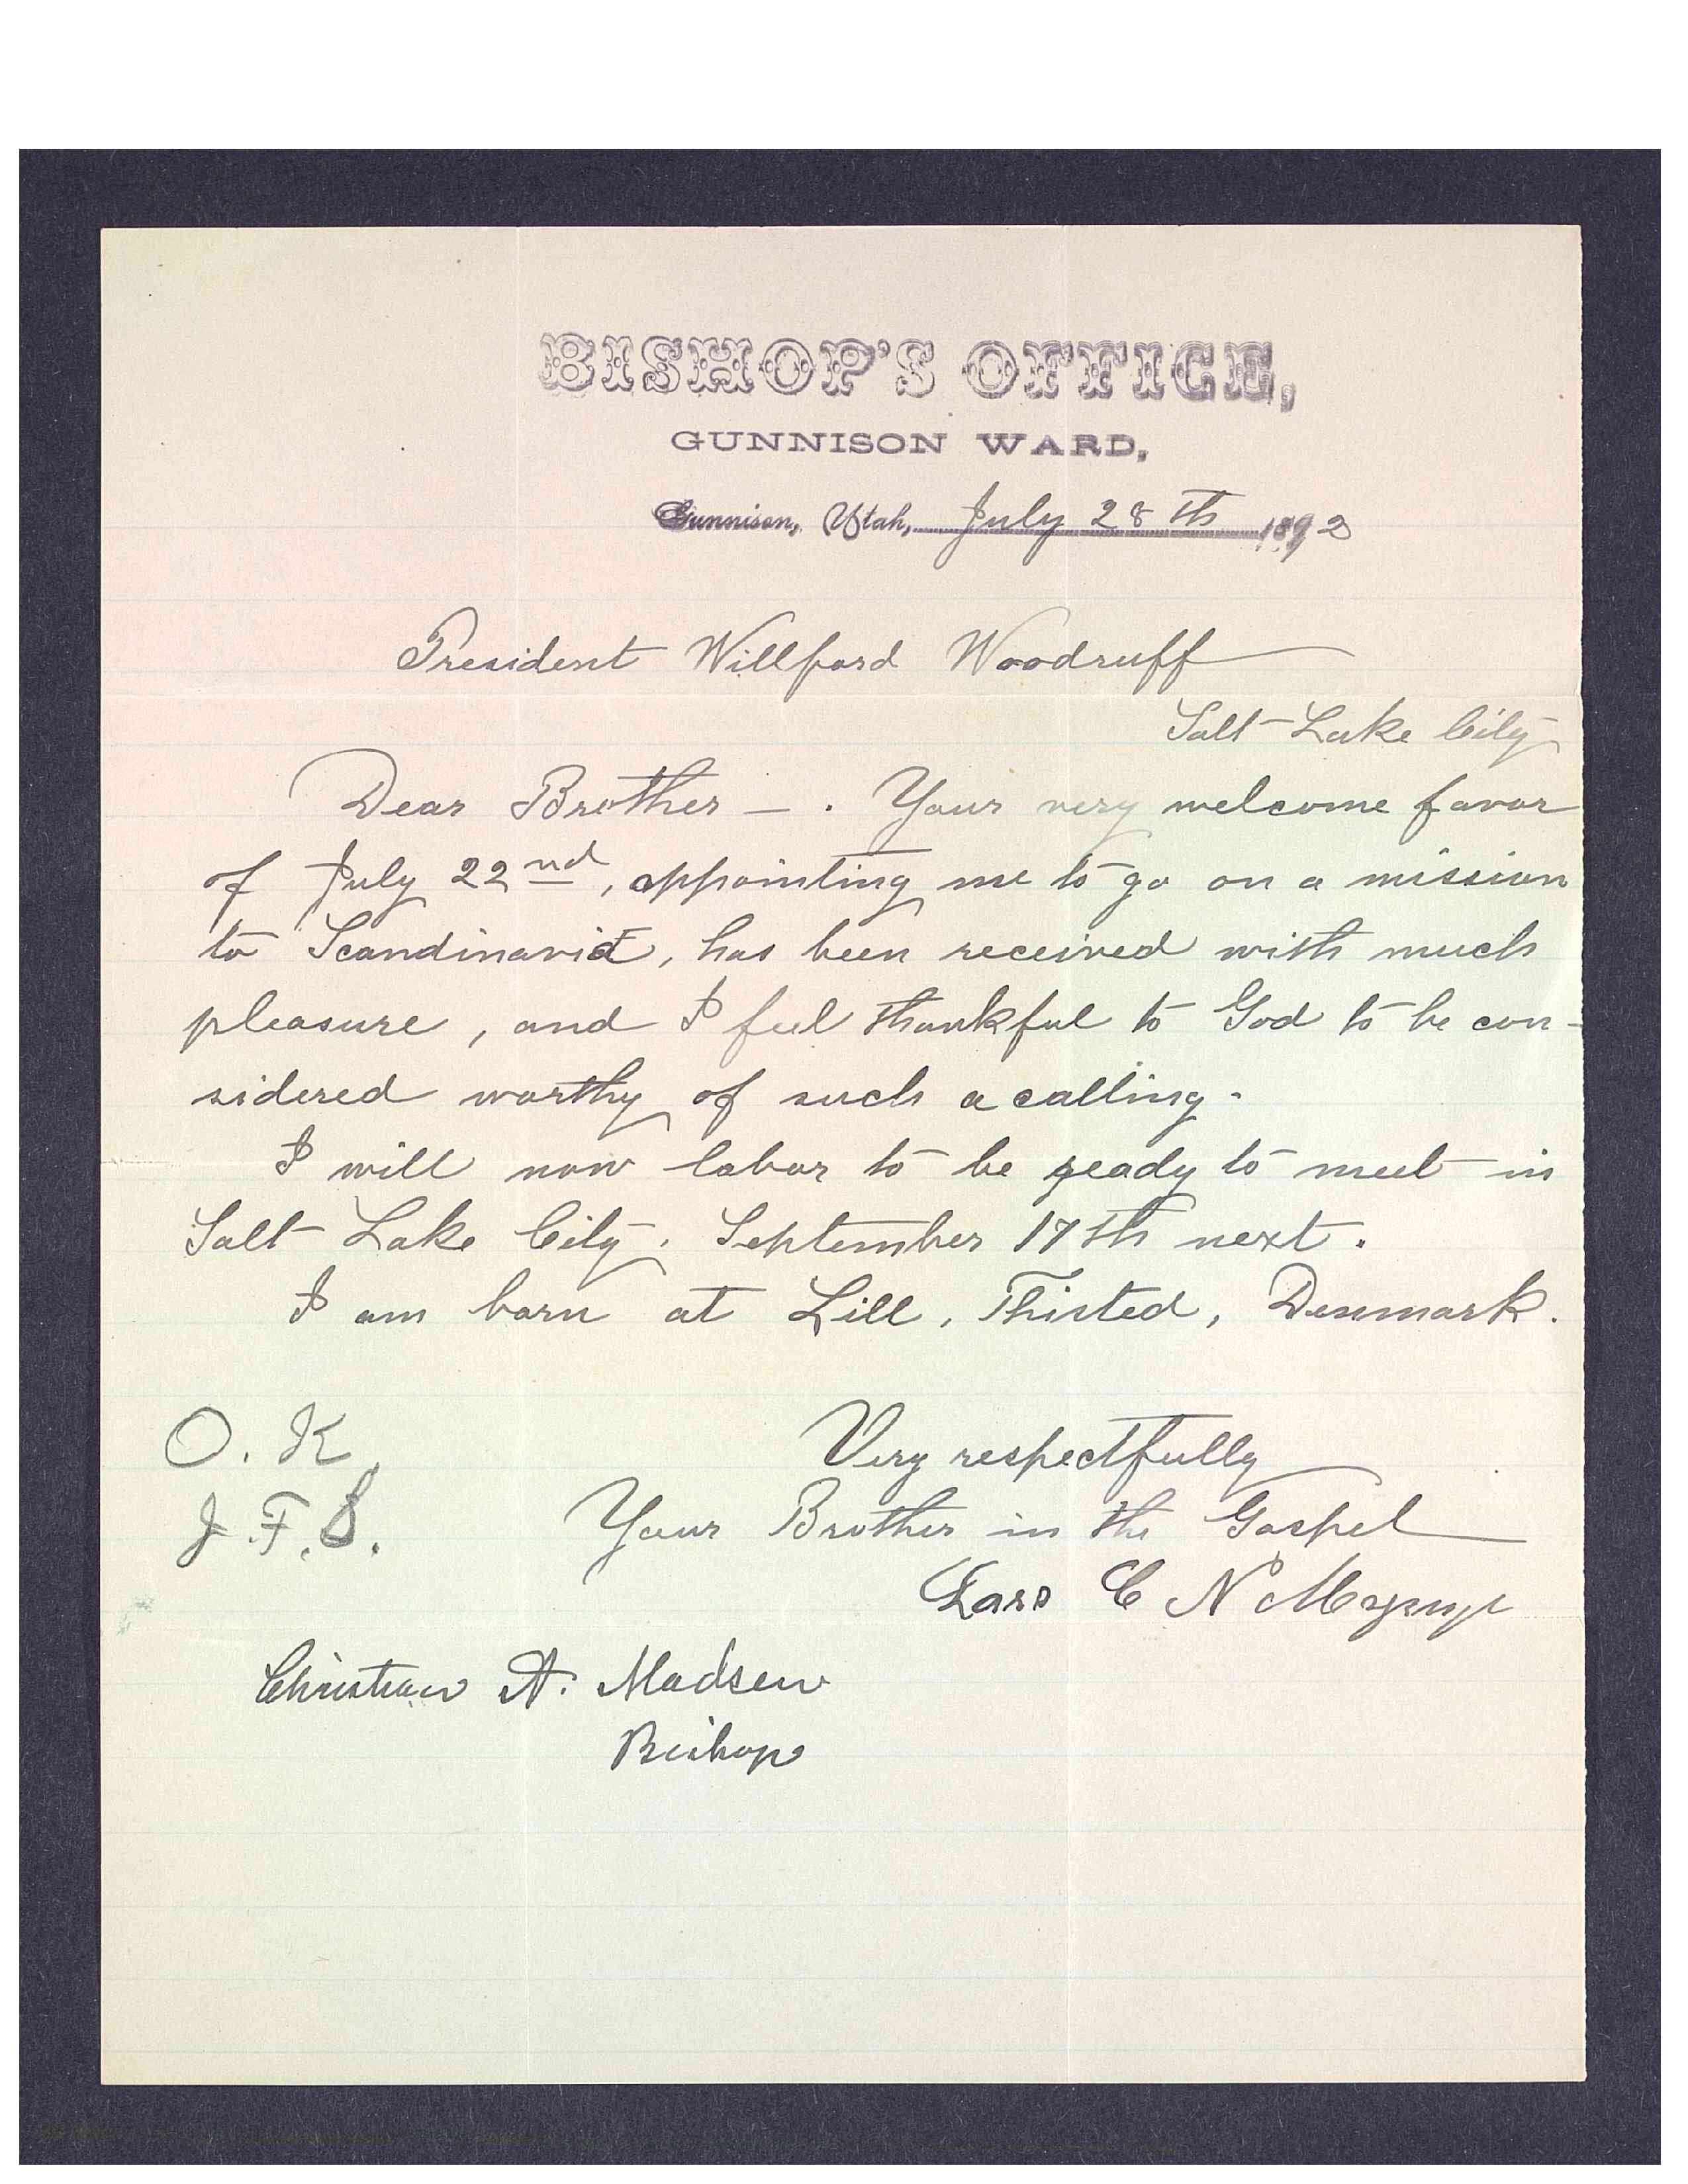 BISHOP'S OFFICE,
GUNNISON WARD,
Gunnison, Utah, July 28th 1892
President Willford Woodruff
Salt Lake City
Dear Brother — . Your very welcome favor
of July 22nd, appointing me to go on a mission
to Scandinavia, has been received with much
pleasure, and I feel thankful to God to be con-
sidered worthy of such a calling.
I will now labor to be ready to meet in
Salt Lake City, September 17th next.
I am born at Lill, Thisted, Denmark.
O. K.
Very respectfully
J. F. S.
Your Brother in the Gospel
Lars C N
Christian A. Madsen
Bishop